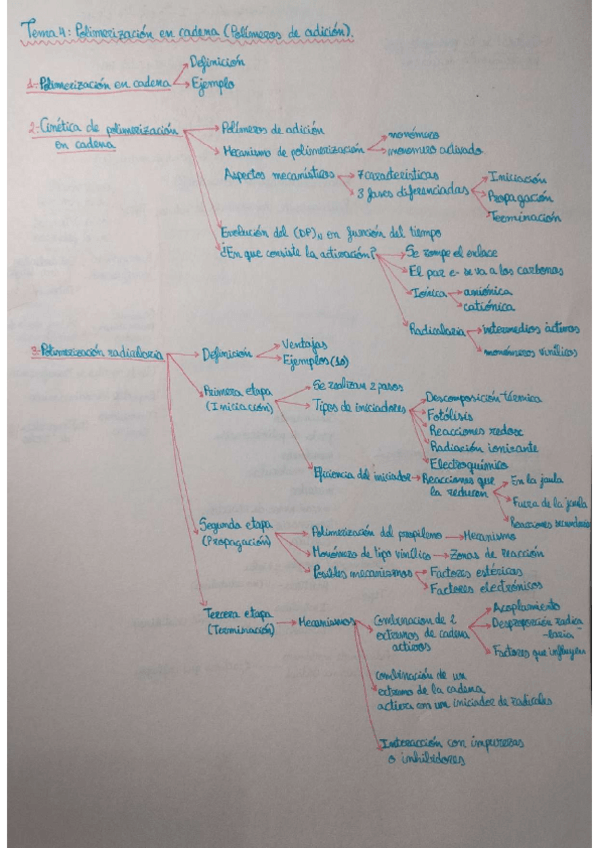 Tema 4: Polimerización en cadena (Polímeros de adición).
Definición
1-Polimerización en cadena
Ejemplo
2-Cinética de polimerización
en cadena
Polímeros de adición
Mecanismo de polimerización
monómero
monomero activado
Aspectos mecanísticos
7 características
3 fases diferenciadas
Iniciación
Propagación
Terminación
Evolución del (DP)N en función del tiempo
¿En que consiste la activación?
Se rompe el enlace
El par e- se va a los carbonos
Iónica
aniónica
catiónica
Radicalaria
intermedios activos
monómeros vinílicos
3-Polimerización radicalaria
Definición
Ventajas
Ejemplos (10)
Primera etapa
(Iniciación)
Se realizan 2 pasos
Tipos de iniciadores
Descomposición térmica
Fotólisis
Reacciones redox
Radiación ionizante
Electroquímico
Eficiencia del iniciador
Reacciones que
la reducen
En la jaula
Fuera de la jaula
Reacciones secundarias
Segunda etapa
(Propagación)
Polimerización del propileno
Mecanismo
Monómero de tipo vinílico
Zonas de reacción
Posibles mecanismos
Factores estéricos
Factores electrónicos
Tercera etapa
(Terminación)
Mecanismos
Combinacion de 2
extremos de cadena
activos
Acoplamiento
Desproporción radica-
laria
Factores que influyen
Combinación de un
extremo de la cadena
activa con un iniciador de radicales
Interacción con impurezas
o inhibidores